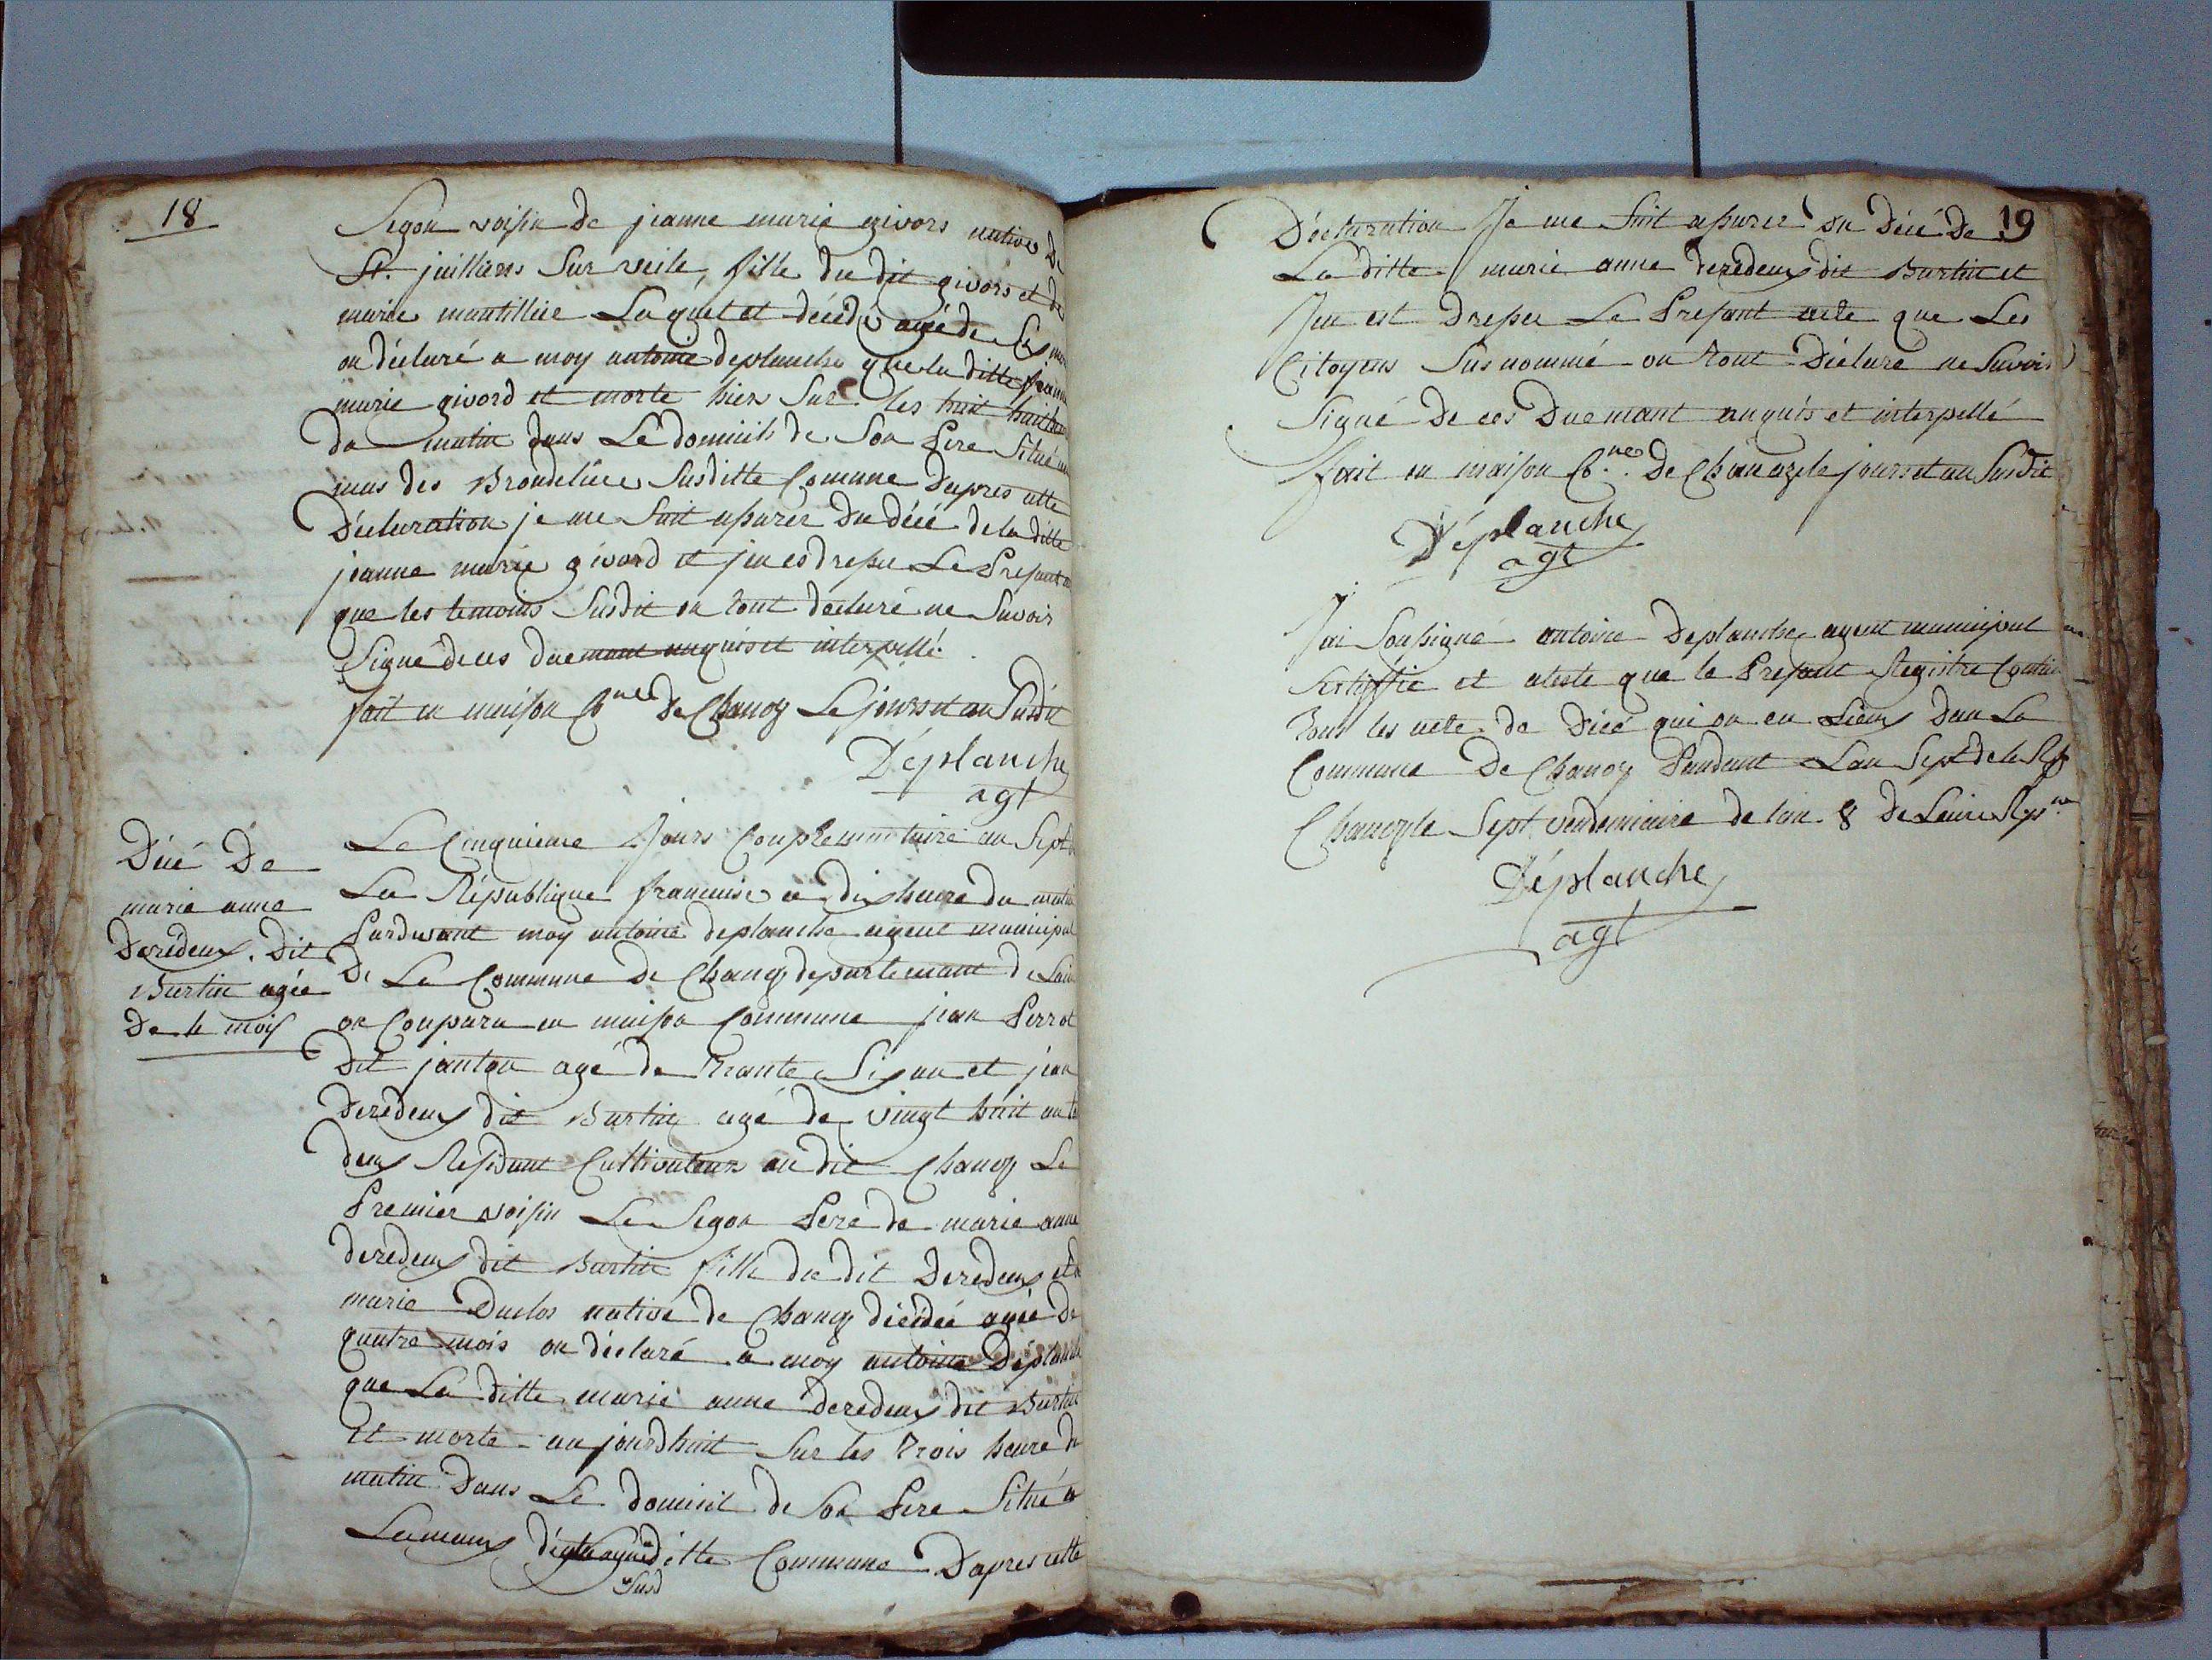 18
Segon voisin de jeanne marie givors native De
St. juilliens Sur veile, fille du dit givors et de
marie mantilliere Laquel et décédé agé de Six
on déclaré a moy antoine deplanche que la ditte jeanne
marie givord et morte hier Sur les huit
du matin dans Le domicile de Son Pere Situé
mas des Brondeliere Susditte Comune Dapres cette
Déclaration je me Suit asurer Du décé de la ditte
jeanne marie givord et jen es dresser Le Presant
que les temoins Susdit on tout déclaré ne Savoir
Signé de ces duemant anquis et interpellé.
fait en maison Cne De Chanoz Le jours et an Susdit
Déplanche
agt
Décé De
marie anne
Deredeux. Dit
Burtin agée
De 4 mois
Le Cinquieme Jours Complementaire an Sept de
La République francaise a dix heure du matin
Pardevant moy antoine deplanche agent municipal
De La Commune De Chanoz departemant de Lain
on Conparu en maison Commune jean Perrot
Dit janton agé de Trante Six an et jean
Deredeux dit Burtin agé de vingt huit an
deux Residant Cultivateur au dit Chanoz Le
Premier voisin Le Segon Pere de marie anne
deredeux dit Burtin fille du dit Deredeux et
marie Duclos native de Chanoz décédée agée De
quatre mois on déclaré a moy antoine Déplanche
que La ditte marie anne deredeux dit Burtin
et morte aujourdhuit Sur les Trois heure du
matin Dans Le domicil de Son Pere Situé a
ditte Commune Dapres cette
Susd
19
Déclaration Je me Suit asurer du décé De
La ditte marie anne deredeux dit Burtin et
Jen est Dresser Le Presant acte que Les
Citoyens Susnommé on tout Déclaré ne Savoir
Signé De ces Duemant anquis et interpellé
fait en maison Cne De Chanoz le jours et an Susdit
Déplanche
agt
Jai Sousigné antoine Deplanche agent municipal
Sertiffie et ateste que le Presant Registre Contien
Tous les acte de Décé qui on eu Lieux Dan La
Commune De Chanoz Pandant Lan Sept de la Rep
Chanoz le Sept vendemiaire de lan 8 De Laire Repne
Déplanche
agt